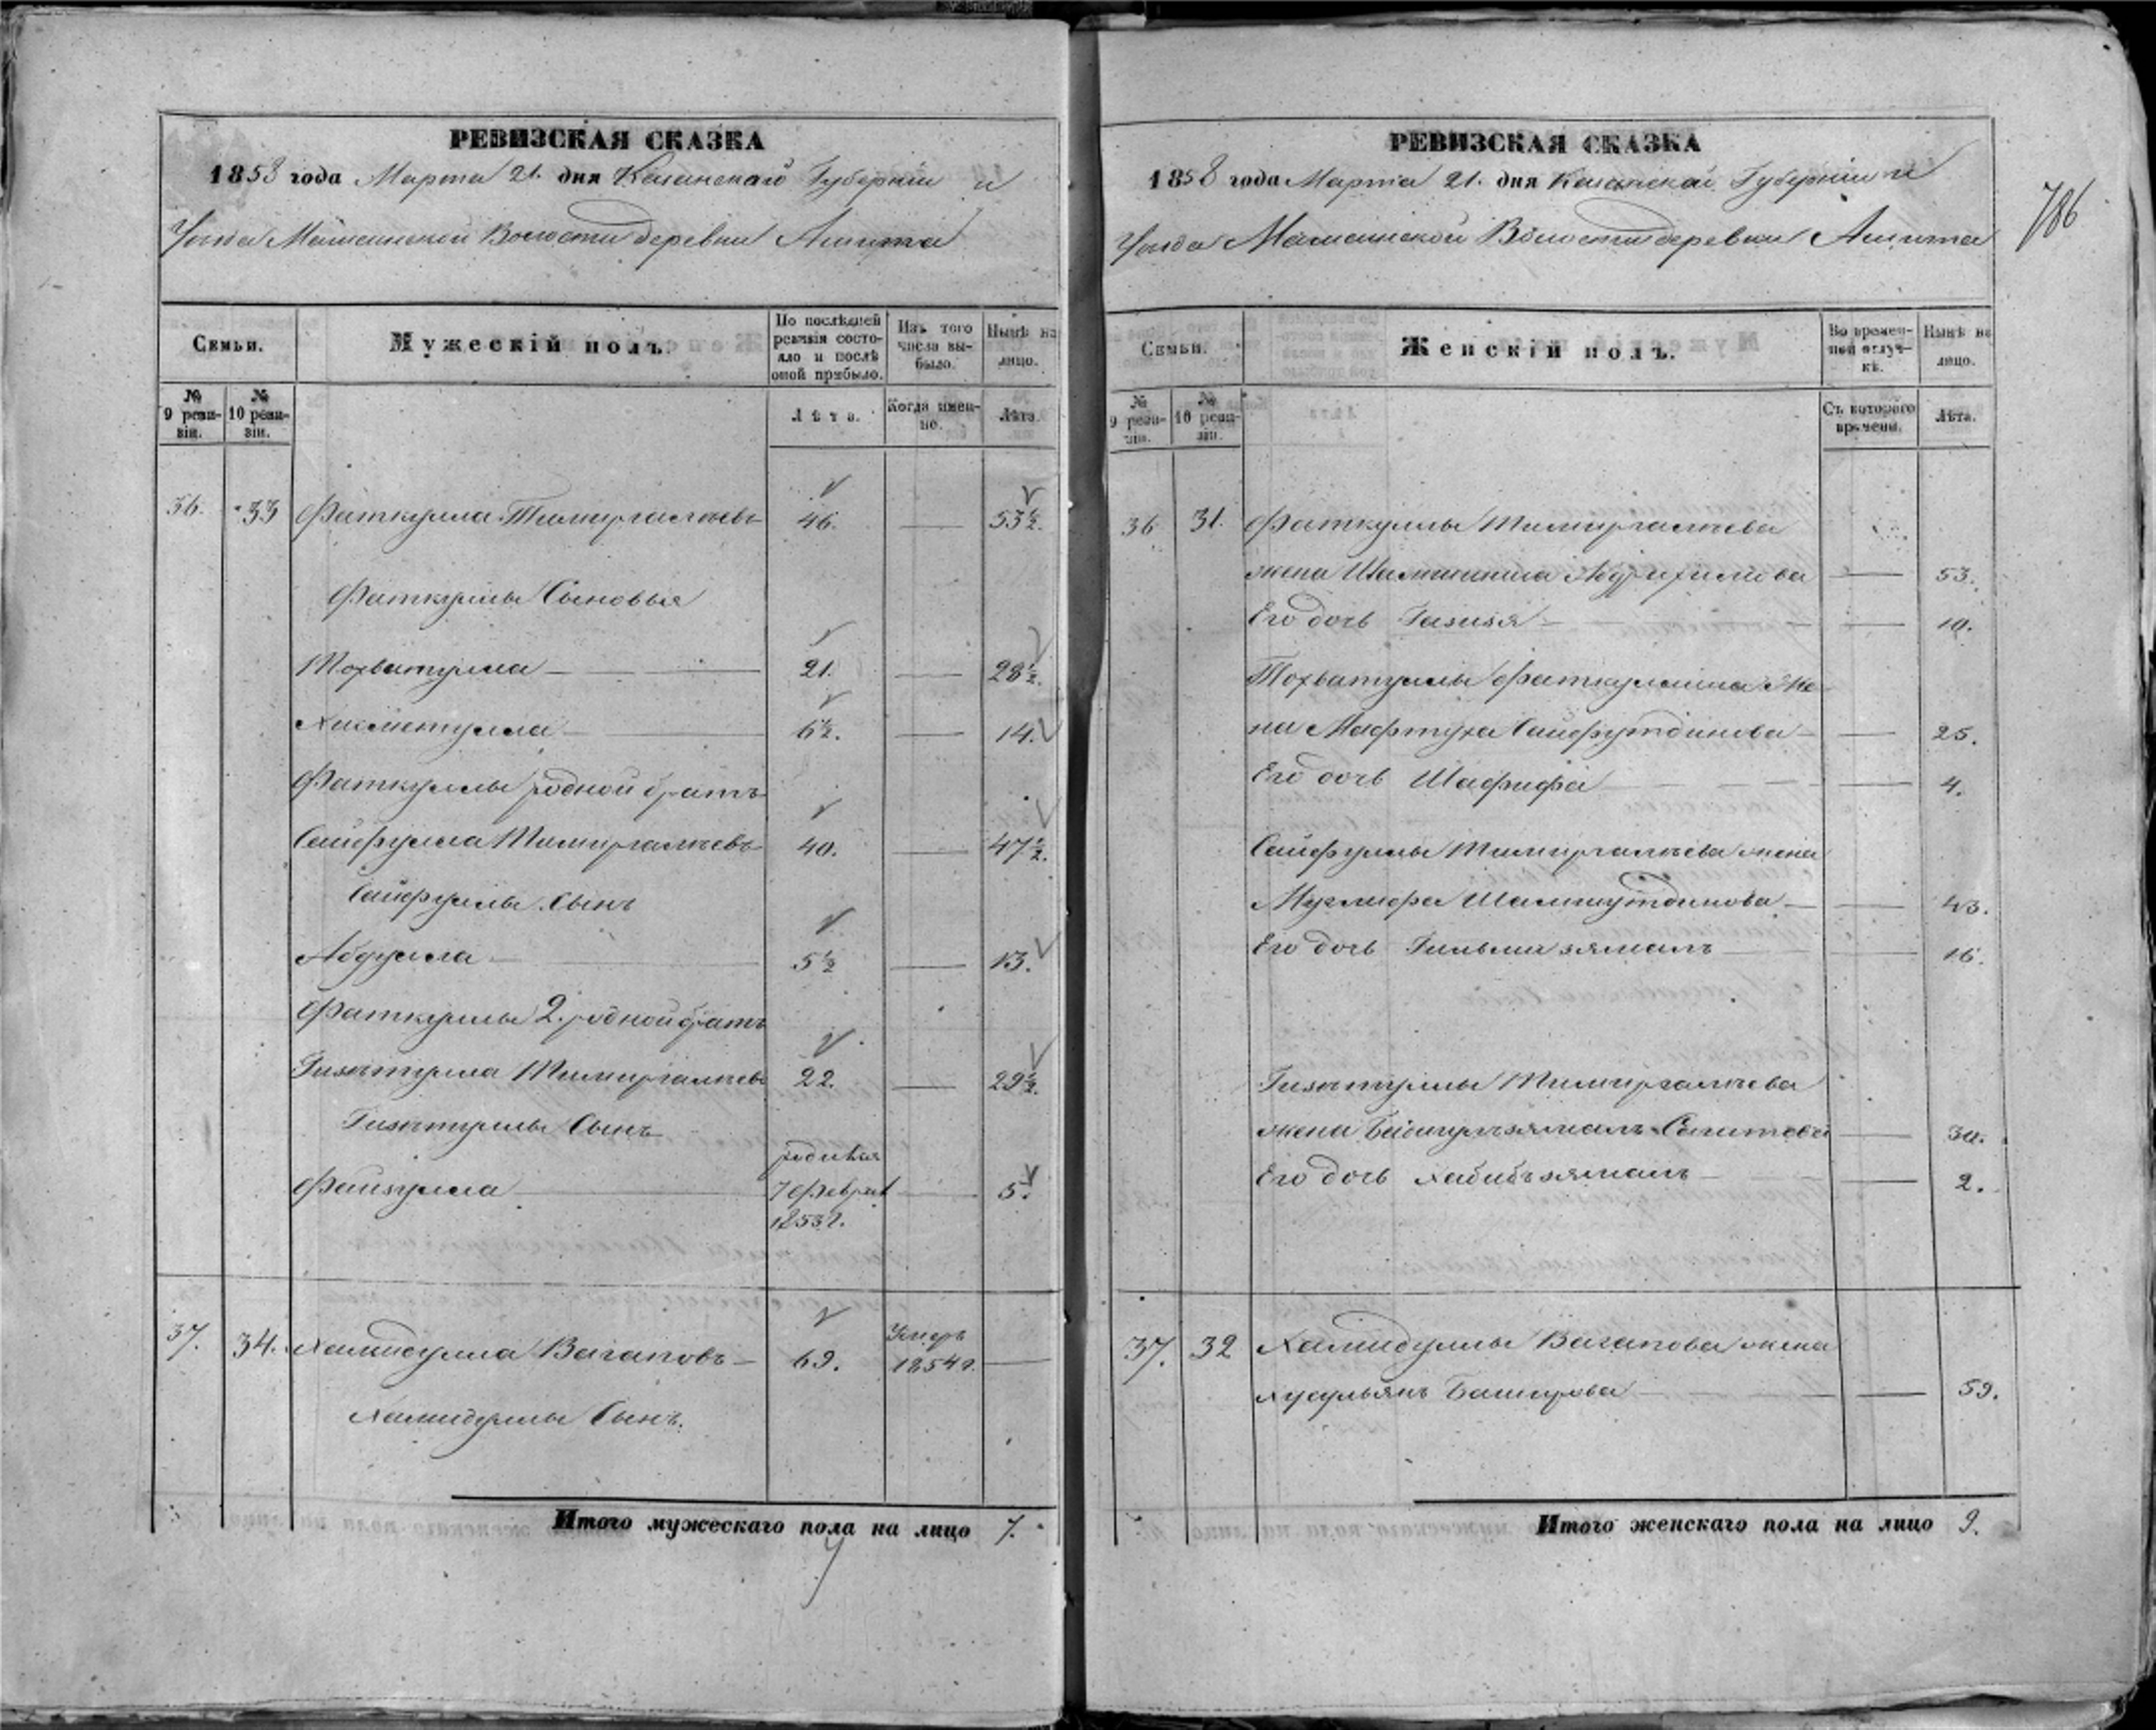 РЕВИЗСКАЯ СКАЗКА
1858 года Марта 21. дня Казанской Губерніи и
Уезда Мамсинской Волости деревни Ашита
Семьи.
Мужескій полъ.
По послѣдней ревизіи состояло и послѣ оной прибыло.
Изъ того числа выбыло.
Нынѣ на лицо.
№ 9 ревизіи.
№ 10 ревизіи.
Лѣта.
Когда именно.
Лѣта.
36. 33 Фаткулла Тимиргалѣевъ 46. — 53½.
Фаткуллы Сыновья
Тохватулла — 21. — 28½.
Хикметулла — 6½. — 14.
Фаткуллы родной братъ
Сайфулла Тимиргалѣевъ 40. — 47½.
Сайфуллы Сынъ
Абдулла — 5½ — 13.
Фаткуллы 2. родной братъ
Гизѣтулла Тимиргалѣевъ 22. — 29½.
Гизѣтуллы Сынъ
Файзулла — родился 7 Феврал 1853 г. — 5.
37. 34. Хамидулла Вагаповъ — 69. Умеръ 1854 г. —
Хамидуллы Сынъ.
Итого мужескаго пола на лицо 7.
РЕВИЗСКАЯ СКАЗКА
1858 года Марта 21. дня Казанской Губерніи и
Уезда Мамсинской Волости деревни Ашита
786
Семьи.
Женскій полъ.
Во временной отлучкѣ.
Нынѣ на лицо.
№ 9 ревизіи.
№ 10 ревизіи.
Съ котораго времени.
Лѣта.
36 31. Фаткуллы Тимиргалѣева
жена Абдрахимова — 53.
Его дочь Газизя — — 10.
Тохватуллы Фаткуллина Же
на Мафтуха Сайфутдинова — — 25.
Его дочь Шафифа — — 4.
Сайфуллы Тимиргалѣева жена
Шамшутдинова — — 43.
Его дочь Гильмизямалъ — 16.
Гизѣтуллы Тимиргалѣева
жена Бадигульзямалъ Сагитова — 30.
Его дочь Хабибъзямалъ — — 2.
37. 32 Хамидуллы Вагапова жена
Баширова — — 59.
Итого женскаго пола на лицо 9.